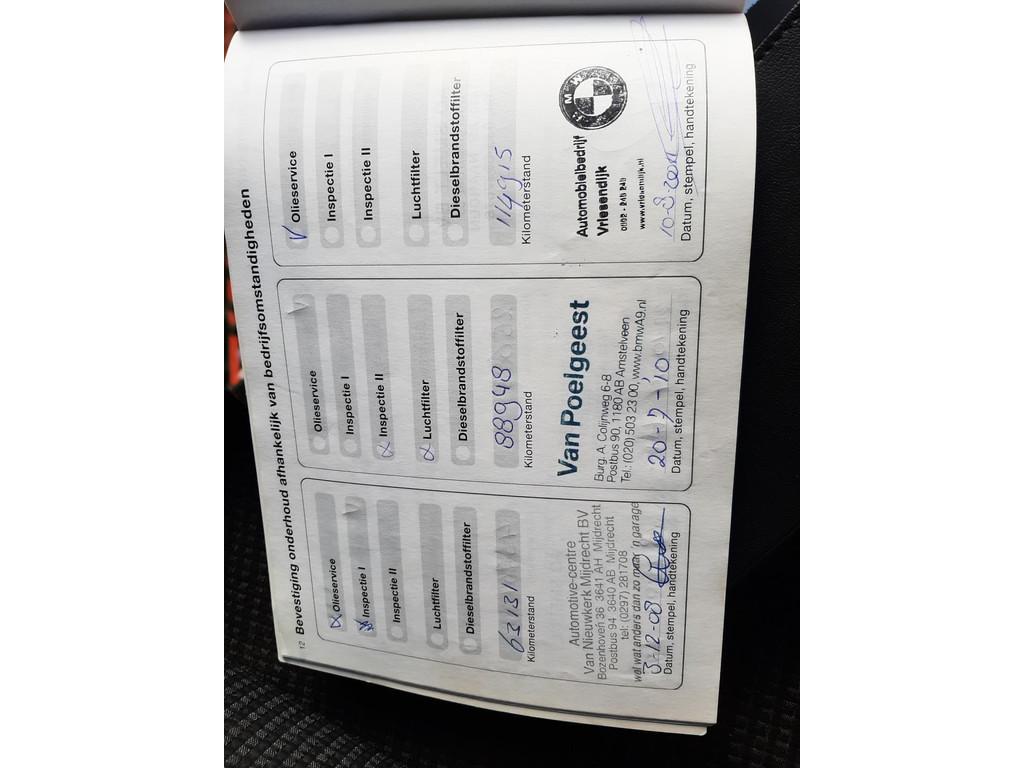 12 Bevestiging onderhoud afhankelijk van bedrijfsomstandigheden
x Olieservice
x Inspectie I
Inspectie II
Luchtfilter
Dieselbrandstoffilter
63131
Kilometerstand
Automotive-centre
Van Nieuwkerk Mijdrecht BV
Bozenhoven 36 3641 AH Mijdrecht
Postbus 94 3640 AB Mijdrecht
tel: (0297) 281708
wel wat anders dan zo maar 'n garage
3-12-08
Datum, stempel, handtekening
Olieservice
Inspectie I
x Inspectie II
x Luchtfilter
Dieselbrandstoffilter
88948
Kilometerstand
Van Poelgeest
Burg. A. Colijnweg 6-8
Postbus 90, 1180 AB Amstelveen
Tel.: (020) 503 23 00, www.bmwA9.nl
20-7-'10
Datum, stempel, handtekening
V Olieservice
Inspectie I
Inspectie II
Luchtfilter
Dieselbrandstoffilter
114915
Kilometerstand
BMW
Automobielbedrijf
Vriesendijk
www.vriesendijk.nl
Datum, stempel, handtekening